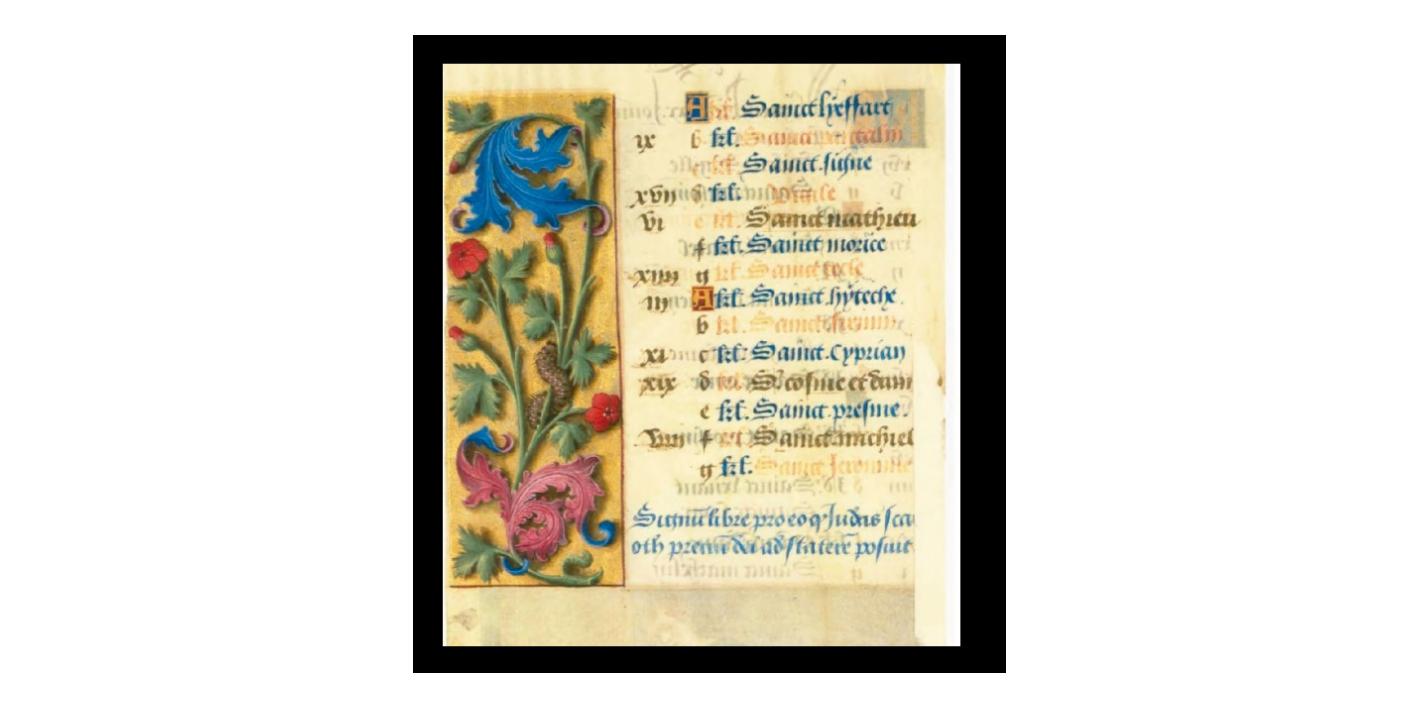 A kl. Sainct lyeffart
ix b kl. Sainct
c kl. Sainct signe
xvii d kl. Vigile
vi e kl. Sainct mathieu
f kl. Sainct morice
xiiii g kl. Sainct tecle
iii A kl. Sainct hyteche
b kl. Sainct firmin
xi c kl. Sainct Cyprian
xix d kl. S. cosme et dam
e kl. Sainct presme.
viii f kl. Sainct michiel
g kl. Sainct Jeronime
Signū libre pro eo q Judas sca
oth preciū dei ad staterē posuit